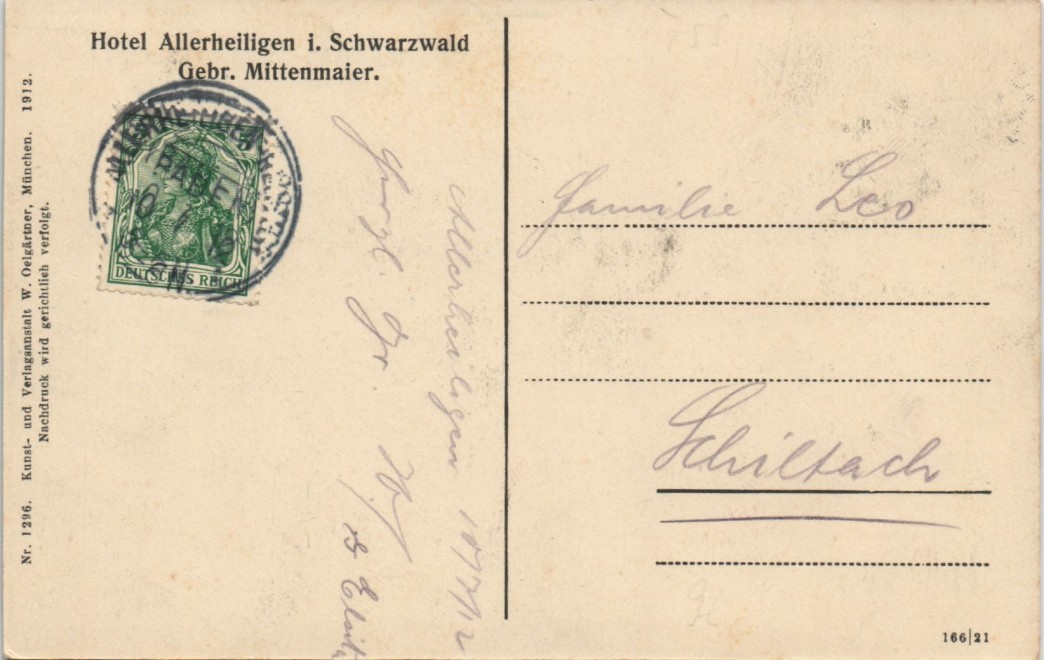 Hotel Allerheiligen i. Schwarzwald
Gebr. Mittenmaier.
Nr. 1296. Kunst- und Verlagsanstalt W. Oelgärtner, München. 1912.
Nachdruck wird gerichtlich verfolgt.
BADEN
DEUTSCHES REICH
Allerheiligen 10/7/12
Familie Leo
Schiltach
166|21